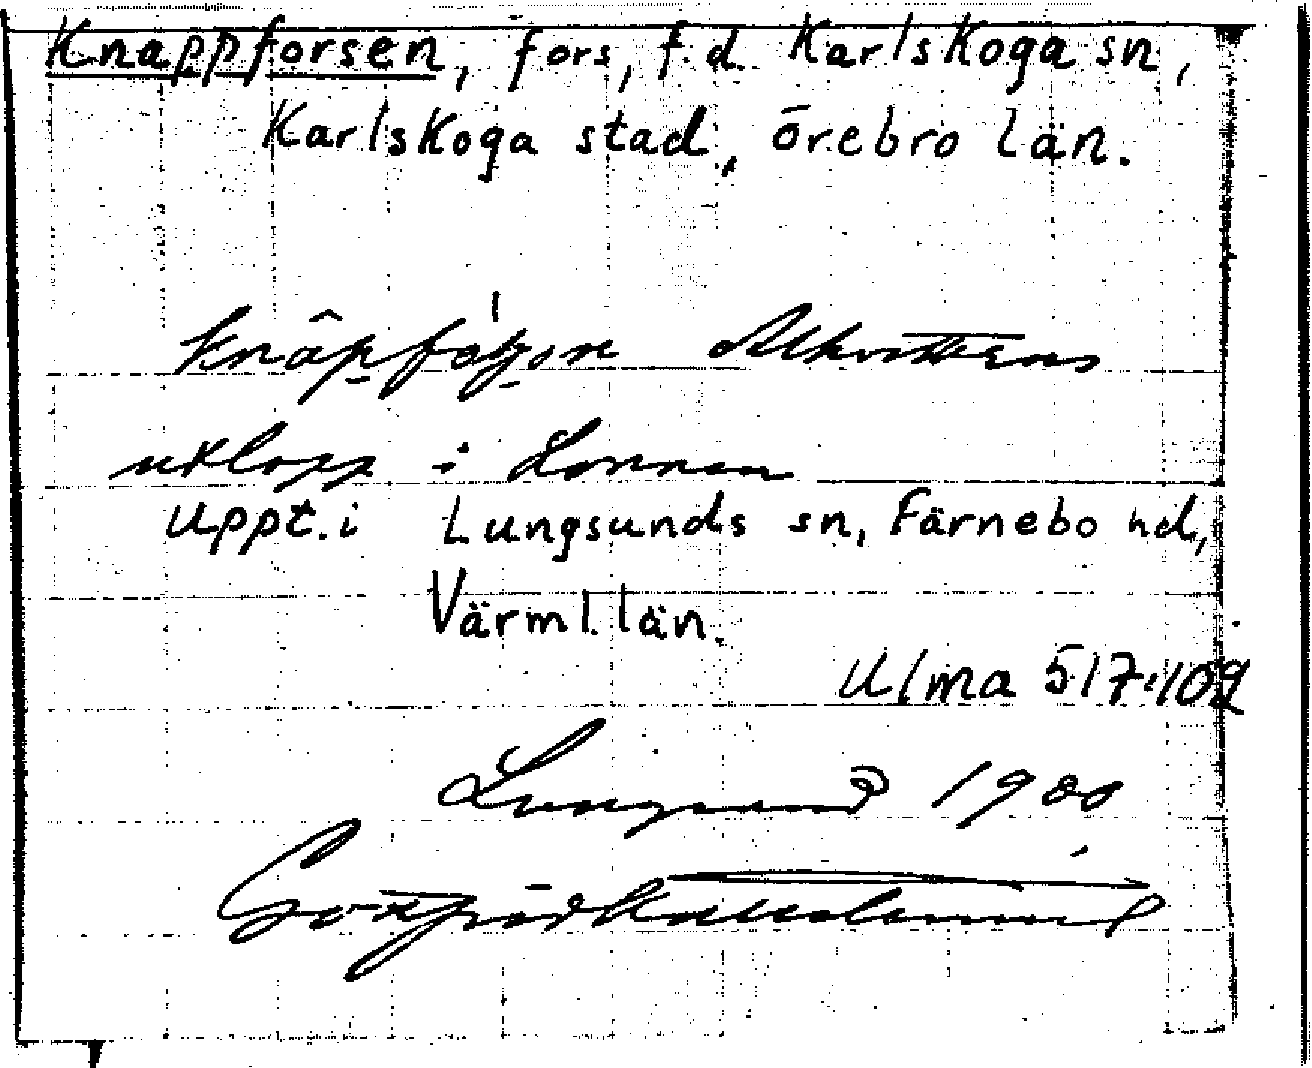 Knappforsen, fors, f.d. Karlskoga sn,
Karlskoga stad, Örebro län.
Alkvetterns
utlopp i Lonnen
Uppt. i Lungsunds sn, Färnebo hd,
Värml. län.
Ulma 517:109
Lungsund 1900
Gottfrid Kallstenius